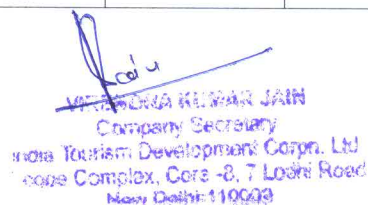 Jain
VIRENDRA KUMAR JAIN
Company Secretary
India Tourism Development Corpn. Ltd
Scope Complex, Core -8, 7 Lodhi Road
New Delhi-110003